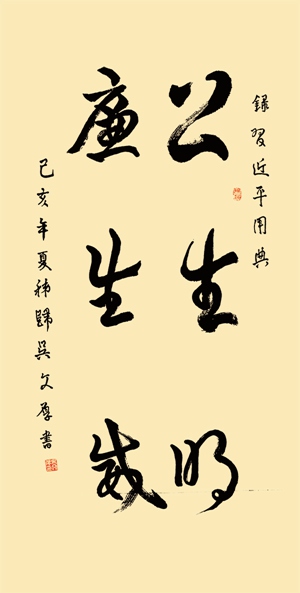 錄習近平用典
公生明
廉生威
己亥年夏秭歸吳文厚書